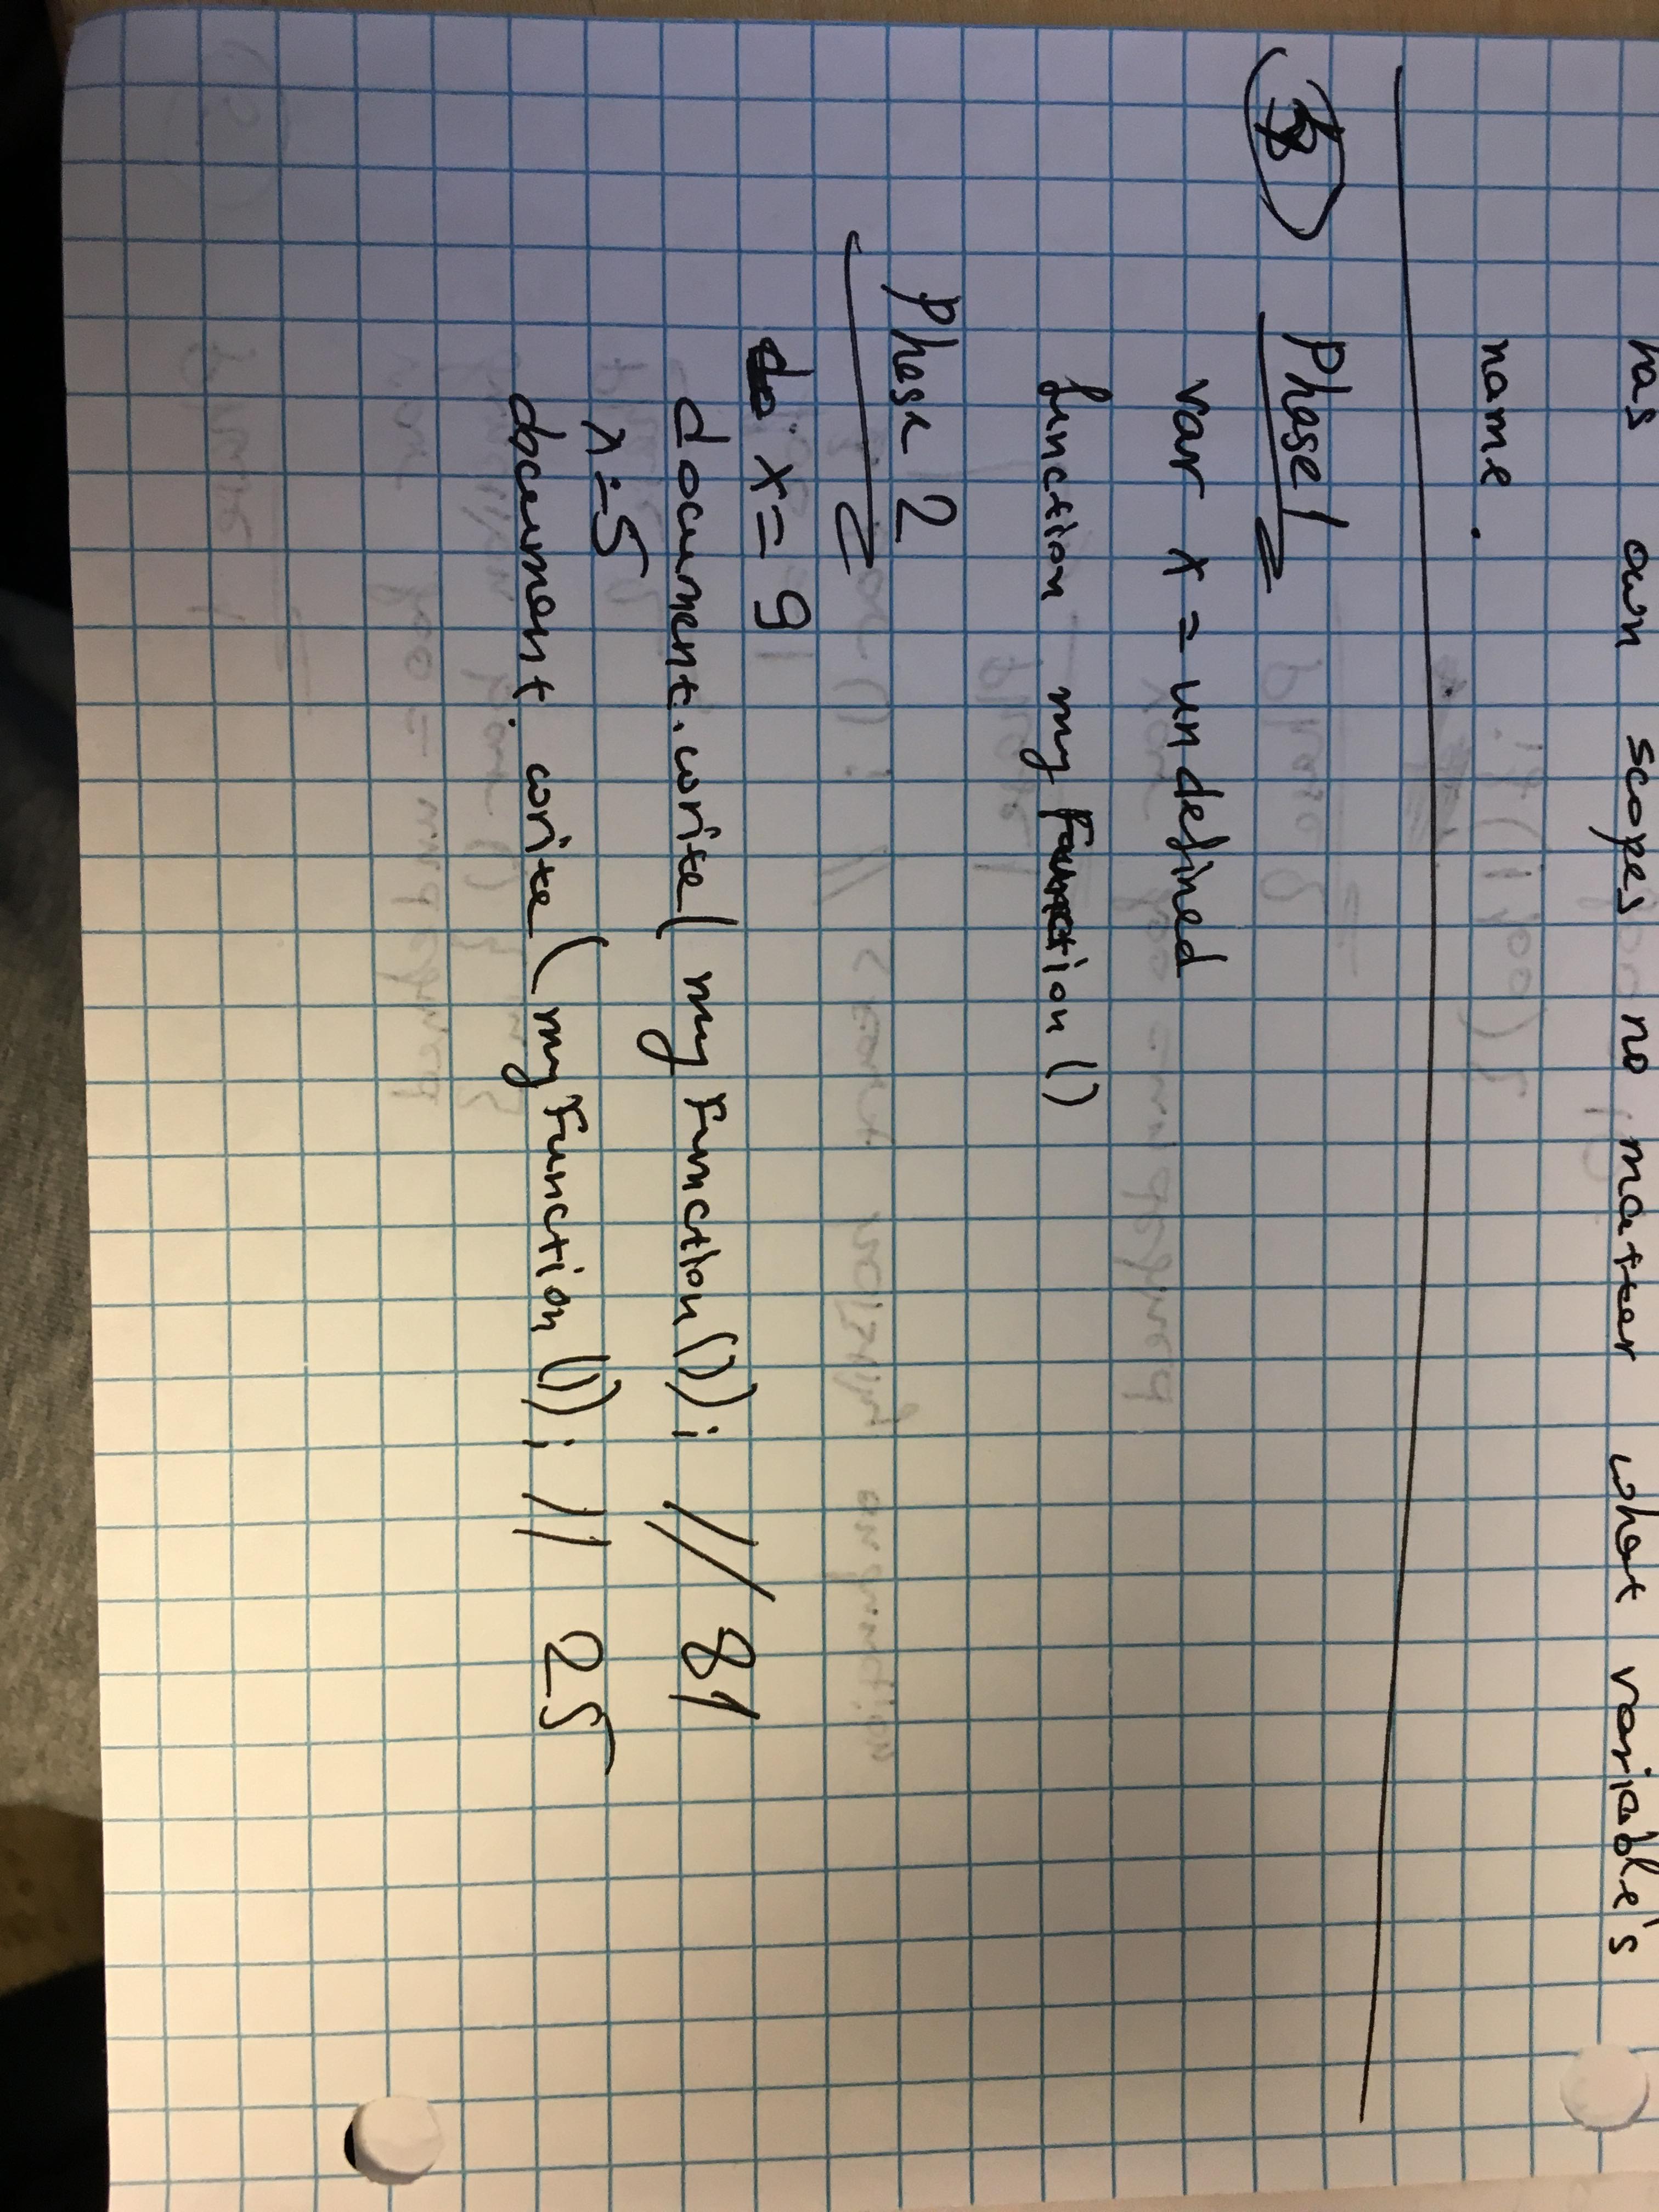 has own scopes no matter what variable's
name.
Phase 1
var x = undefined
function myFunction()
Phase 2
x = 9
document.write(myFunction()); // 81
x = 5
document.write(myFunction()); // 25